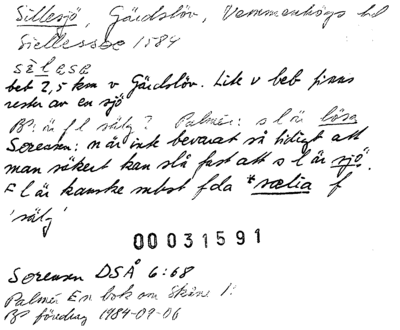 Sillesjö, Gärdslöv, Vemmenhögs hd
Siellessøe 1584
sélese
bet 2,5 km v Gärdslöv. Lite v beb finns
rester av en sjö
BP: är f l sälg? Palmér: s l är lösa
Sørensen: n är inte bevarat så tidigt att
man säkert kan slå fast att s l är sjö.
F l är kanske subst fda *sælia f
'sälg'
00031591
Sørensen DSÅ 6:68
Palmér En bok om Skåne 1:
BP föredrag 1984-09-06